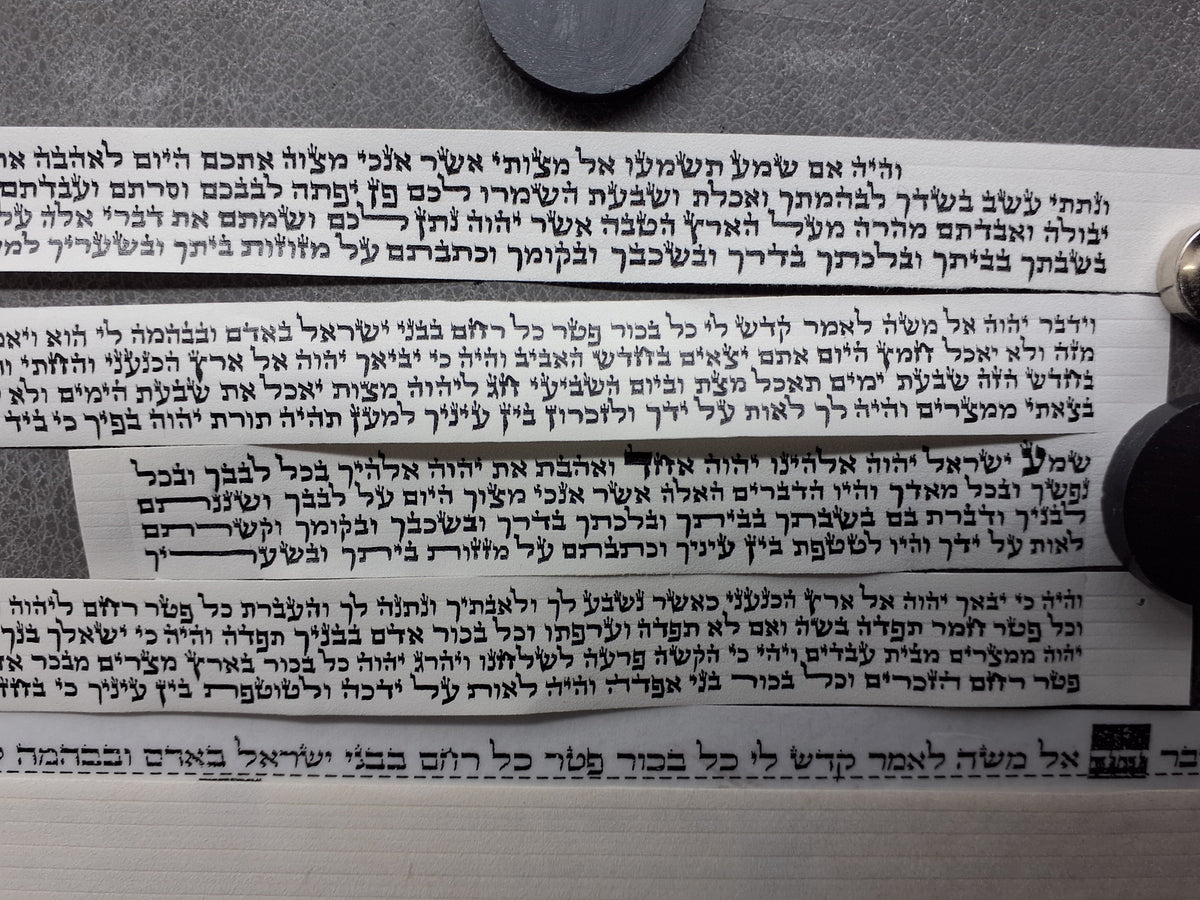 והיה אם שמע תשמעו אל מצותי אשר אנכי מצוה אתכם היום לאהבה את
ונתתי עשב בשדך לבהמתך ואכלת ושבעת השמרו לכם פן יפתה לבבכם וסרתם ועבדתם
יבולה ואבדתם מהרה מעל הארץ הטבה אשר יהוה נתן לכם ושמתם את דברי אלה על
בשבתך בביתך ובלכתך בדרך ובשכבך ובקומך וכתבתם על מזוזות ביתך ובשעריך למע
וידבר יהוה אל משה לאמר קדש לי כל בכור פטר כל רחם בבני ישראל באדם ובבהמה לי הוא ויאמ
מזה ולא יאכל חמץ היום אתם יצאים בחדש האביב והיה כי יביאך יהוה אל ארץ הכנעני והחתי
בחדש הזה שבעת ימים תאכל מצת וביום השביעי חג ליהוה מצות יאכל את שבעת הימים ולא
בצאתי ממצרים והיה לך לאות על ידך ולזכרון בין עיניך למען תהיה תורת יהוה בפיך כי ביד
שמע ישראל יהוה אלהינו יהוה אחד ואהבת את יהוה אלהיך בכל לבבך ובכל
נפשך ובכל מאדך והיו הדברים האלה אשר אנכי מצוך היום על לבבך ושננתם
לבניך ודברת בם בשבתך בביתך ובלכתך בדרך ובשכבך ובקומך וקשרתם
לאות על ידך והיו לטטפת בין עיניך וכתבתם על מזזות ביתך ובשעריך
והיה כי יבאך יהוה אל ארץ הכנעני כאשר נשבע לך ולאבתיך ונתנה לך והעברת כל פטר רחם ליהוה
וכל פטר חמר תפדה בשה ואם לא תפדה וערפתו וכל בכור אדם בבניך תפדה והיה כי ישאלך בנך
יהוה ממצרים מבית עבדים ויהי כי הקשה פרעה לשלחנו ויהרג יהוה כל בכור בארץ מצרים מבכר אד
פטר רחם הזכרים וכל בכור בני אפדה והיה לאות על ידכה ולטוטפת בין עיניך כי בחז
בר יהוה אל משה לאמר קדש לי כל בכור פטר כל רחם בבני ישראל באדם ובבהמה